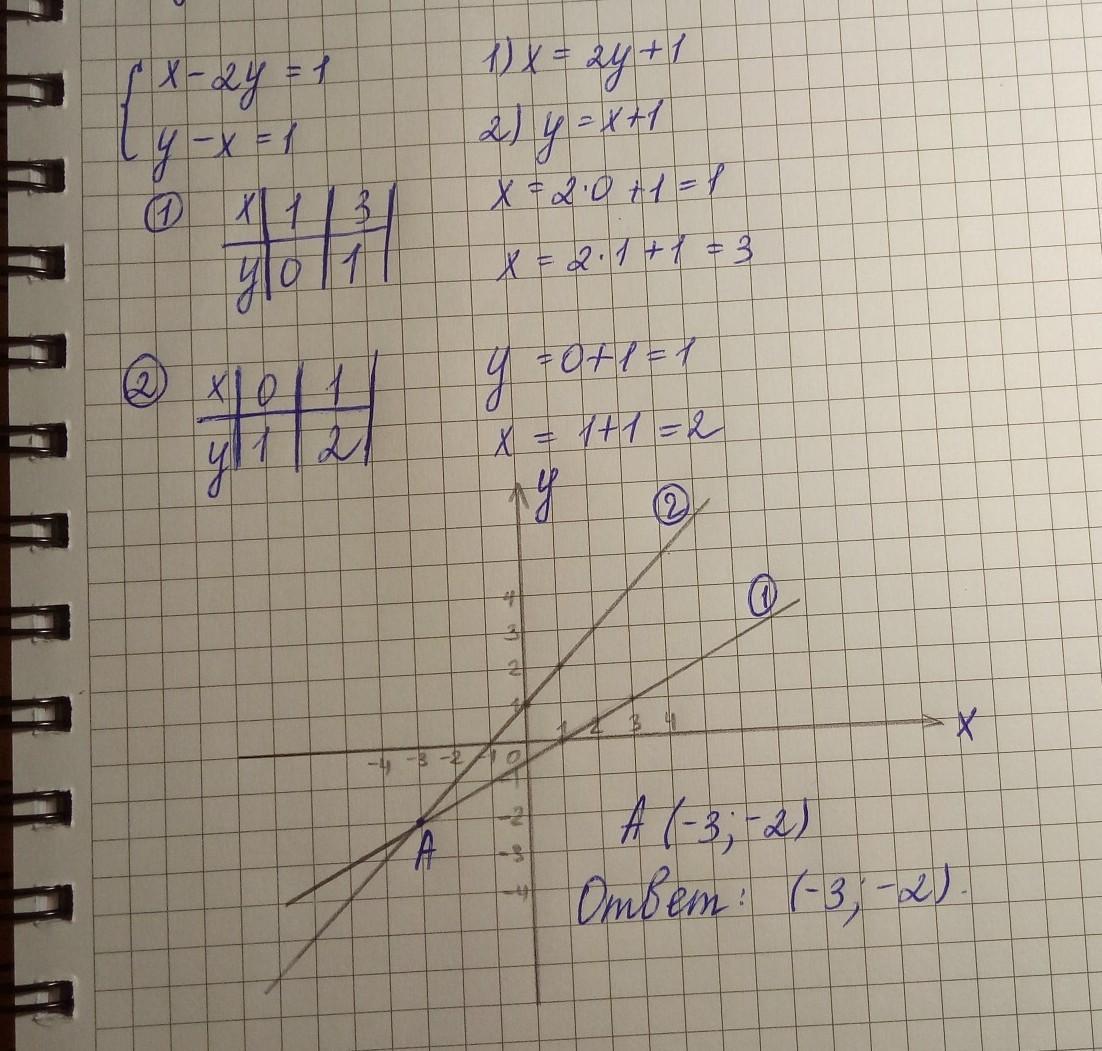 { x - 2y = 1
y - x = 1
1) x = 2y + 1
2) y = x + 1
① x | 1 | 3
y | 0 | 1
x = 2·0 + 1 = 1
x = 2·1 + 1 = 3
② x | 0 | 1
y | 1 | 2
y = 0+1 = 1
x = 1+1 = 2
y
②
①
4
3
2
1
-4 -3 -2 -1 0 1 2 3 4
x
-1
-2
-3
-4
A
A (-3; -2)
Ответ: (-3; -2).